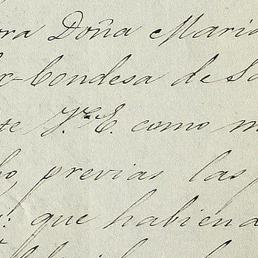 ora Doña Maria
Ex-Condesa de Sa
te V.E. como m
ho previas las
que habiend